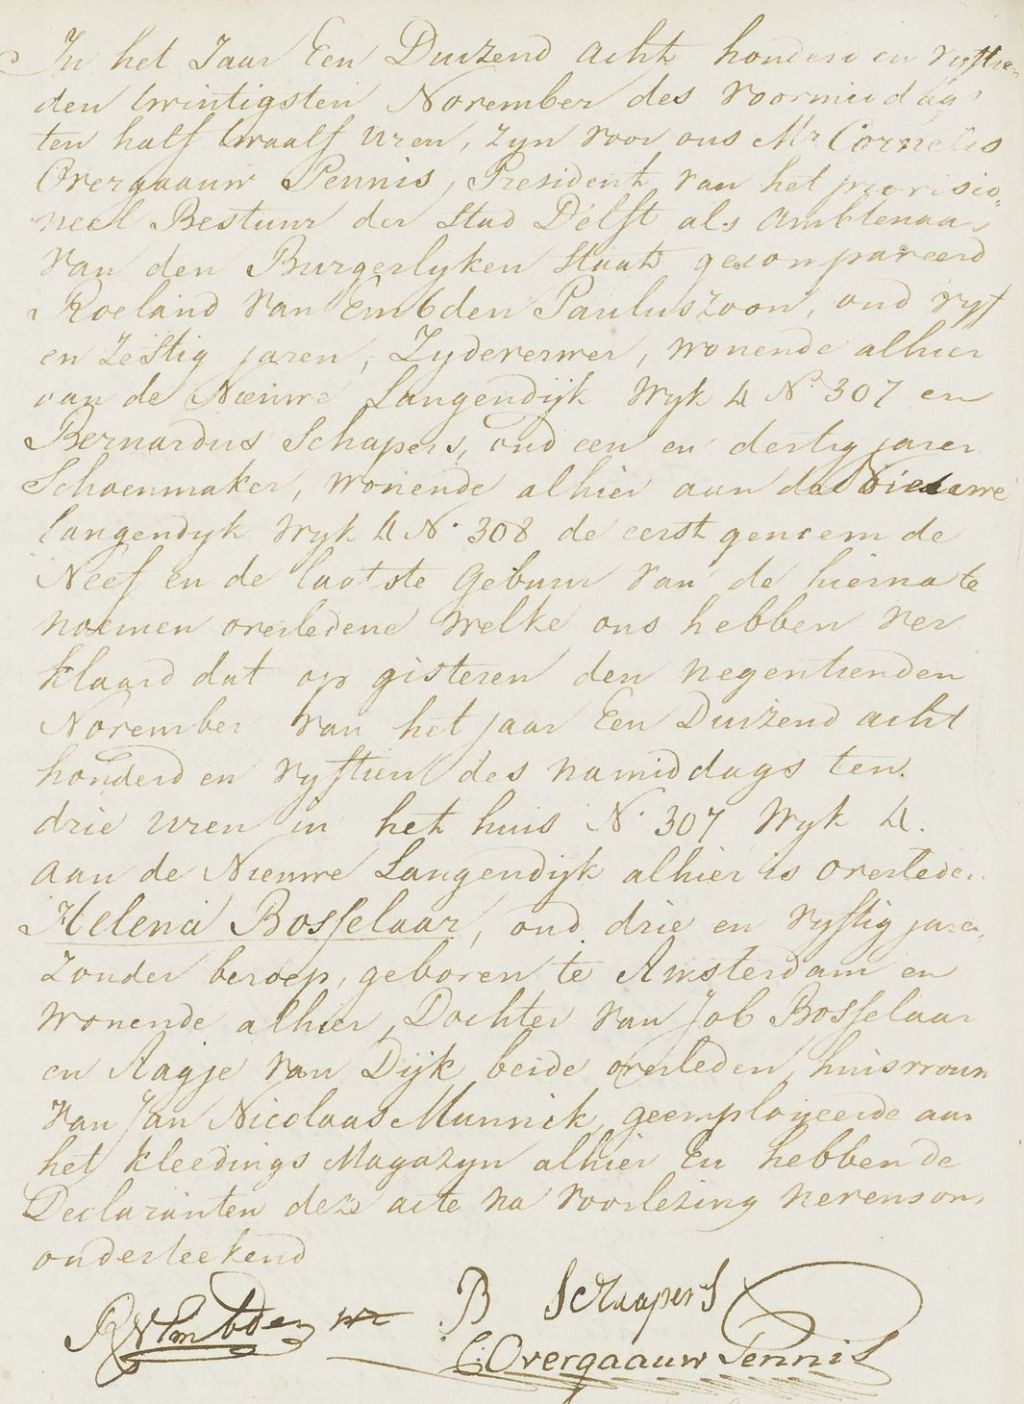 In het Jaar Een Duizend acht honderd en vyftien
den twintigsten November des voormiddags
ten half twaalf uren, zyn voor ons Mr. Cornelis
Overgaauw Pennis, President van het provisio„
neel Bestuur der Stad Delft als Ambtenaar
van den Burgerlyken Staat gecompareerd
Roeland van Embden Pauluszoon, oud vyf
en Zestig jaren, Zydeverwer, wonende alhier
aan de Nieuwe Langendijk Wyk 4 No. 307 en
Bernardus Schapers, oud een en dertig jaren
Schoenmaker, wonende alhier aan de Nieuwe
Langendyk Wyk 4 No. 308 de eerstgenoemde
Neef en de laatste Gebuur van de hierna te
noemen overledene welke ons hebben ver
klaard dat op gisteren den negentienden
November van het jaar Een Duizend acht
honderd en vyftien des namiddags ten
drie uren in het huis No. 307 Wyk 4.
aan de Nieuwe Langendijk alhier is overleden
Helena Bosselaar, oud drie en vyftig jaren,
Zonder beroep, geboren te Amsterdam en
wonende alhier, Dochter van Job Bosselaar
en Aagje van Dijk beide overleden, huisvrouw
van Jan Nicolaas Munnik, geemploijeerde aan
het Kleedings Magazyn alhier En hebben de
Declaranten deze acte na voorlezing nevens ons
onderteekend
RVEmbden
B Schapers
C: Overgaauw Pennis